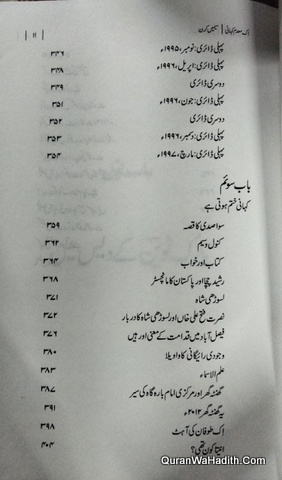 اک معدوم کہانی | حسین کون | ۱۱ |
پہلی ڈائری: نومبر، ۱۹۹۵ء ۳۴۶
پہلی ڈائری: اپریل، ۱۹۹۶ء ۳۴۸
دوسری ڈائری ۳۴۹
پہلی ڈائری: جون، ۱۹۹۶ء ۳۵۱
دوسری ڈائری ۳۵۲
پہلی ڈائری: دسمبر، ۱۹۹۶ء ۳۵۳
پہلی ڈائری: مارچ، ۱۹۹۷ء ۳۵۴
باب سوئم
کہانی ختم ہوتی ہے
سوا صدی کا قصہ ۳۵۹
کنول وسیم ۳۶۲
کتاب اور خواب ۳۶۴
رشید چچا اور پاکستان کا مانچسٹر ۳۶۸
لسوڑھی شاہ ۳۷۱
نصرت فتح علی خاں اور لسوڑھی شاہ کا دربار ۳۷۲
فیصل آباد میں قدامت کے معنی اور ہیں ۳۷۶
وجودی رائیگانی کا واویلا ۳۸۰
علم الاسماء ۳۸۳
گھنٹہ گھر اور مرکزی امام بارہ گاہ کی سیر ۳۸۷
یہ گھنٹہ گھر ۲۰۱۲ء ۳۹۱
اک طوفان کی آہٹ ۳۹۸
انیتا کون تھی؟ ۴۰۴
QuranWaHadith.Com